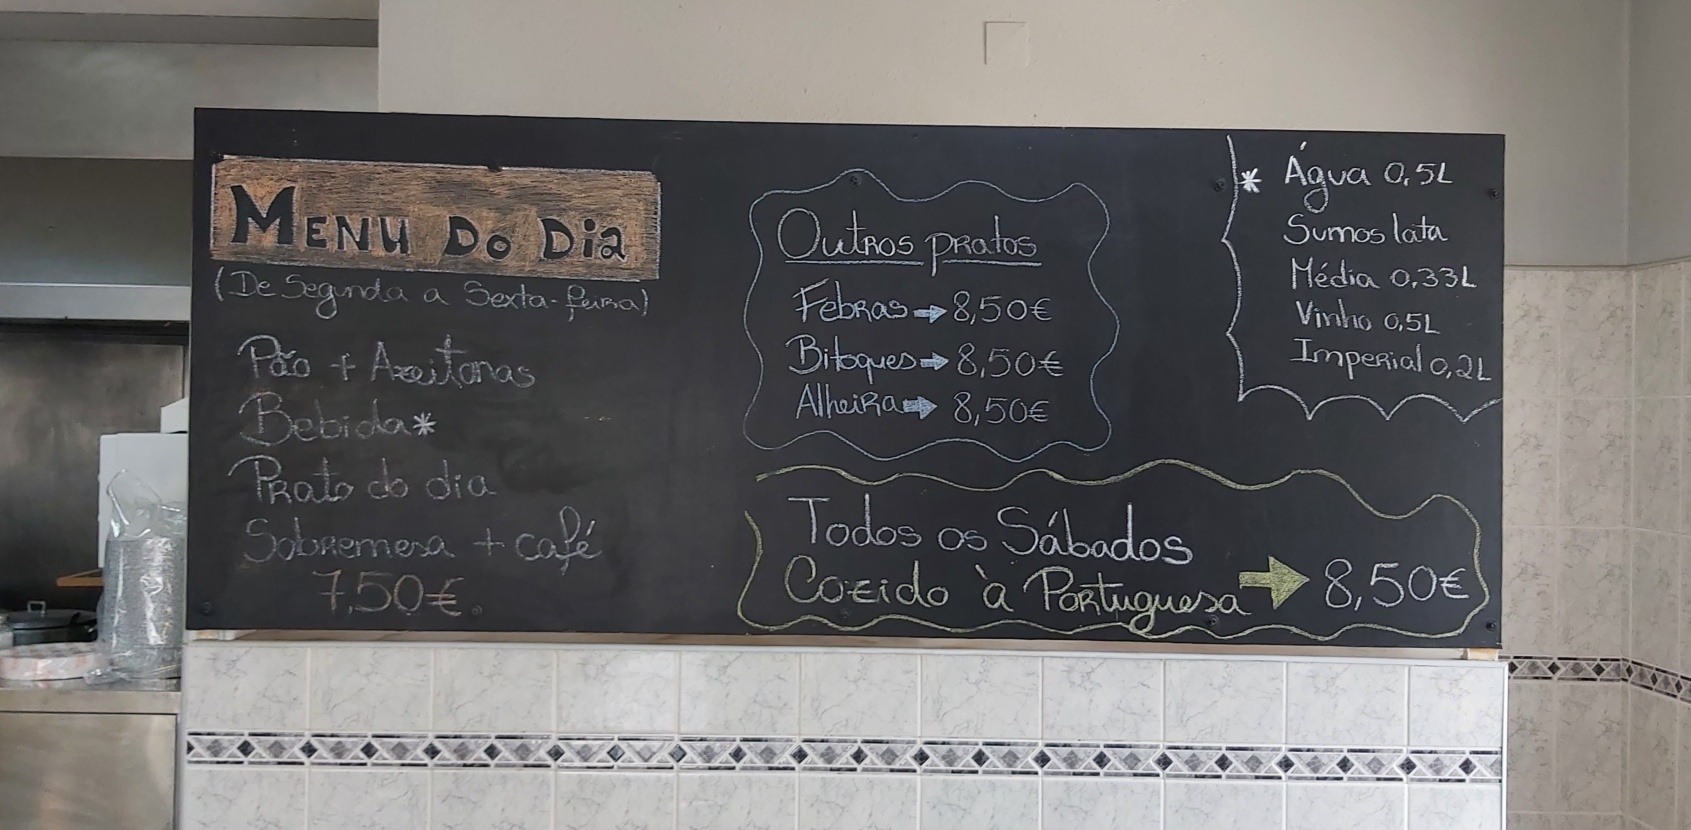 MENU DO Dia
(De Segunda a Sexta-feira)
Pão + Azeitonas
Bebida*
Prato do dia
Sobremesa + café
7,50€
Outros pratos
Febras → 8,50€
Bitoques → 8,50€
Alheira → 8,50€
Todos os Sábados
Cozido à Portuguesa → 8,50€
* Água 0,5L
Sumos lata
Média 0,33L
Vinho 0,5L
Imperial 0,2L